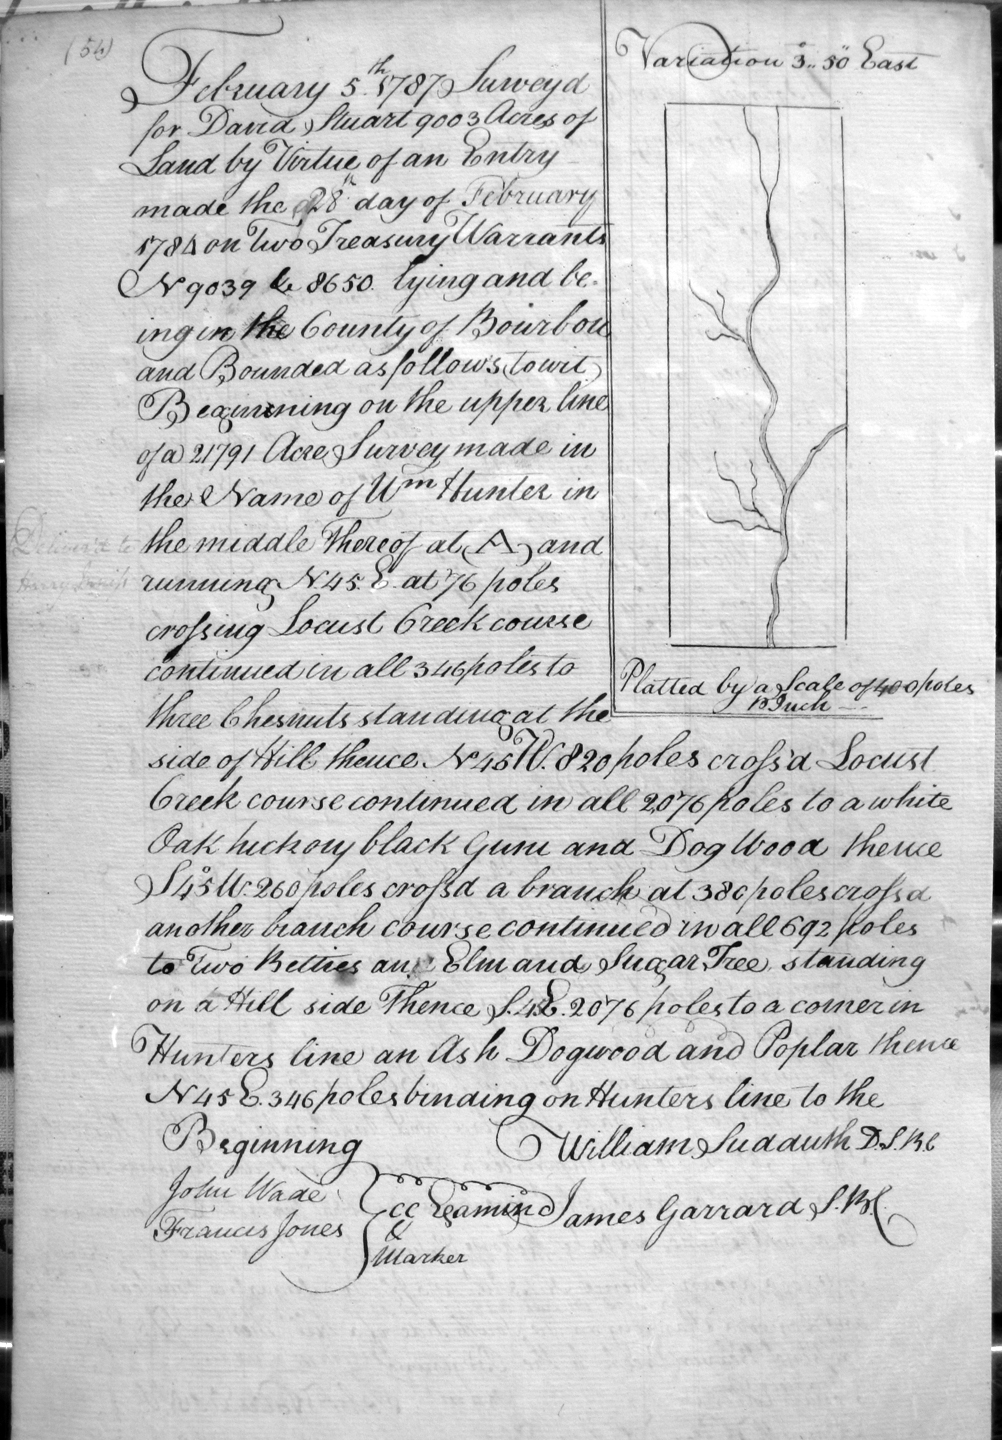 (54)
February 5th 1787 Survey'd
for David Stuart 9003 Acres of
Land by Virtue of an Entry
made the 28th day of February
1784 on Two Treasury Warrants
No 9039 & 8650. lying and be-
ing in the County of Bourbon
and Bounded as follows (towit)
Beginning on the upper line
of a 21791 Acre Survey made in
the Name of Wm Hunter in
the middle Thereof at (A) and
running N.45.E. at 76 poles
crossing Locust Creek course
continued in all 346 poles to
three Chesnuts standing at the
side of Hill thence N45W. 820 poles cross'd Locust
Creek course continued in all 2076 poles to a white
Oak hickory black Gum and Dog Wood thence
S45W. 260 poles cross'd a branch at 380 poles cross'd
another branch course continued in all 692 poles
to Two Betties an Elm and Sugar Tree standing
on a Hill side Thence S.45E. 2076 poles to a corner in
Hunters line an Ash Dogwood and Poplar thence
N45E. 346 poles binding on Hunters line to the
Beginning William Sudduth D.S.B.C
John Wade
Francis Jones
CC
&
Marker
Examined James Garrard S.B.C.
Variation 3°..50" East
Platted by a Scale of 400 poles
P Inch
Deliver'd to